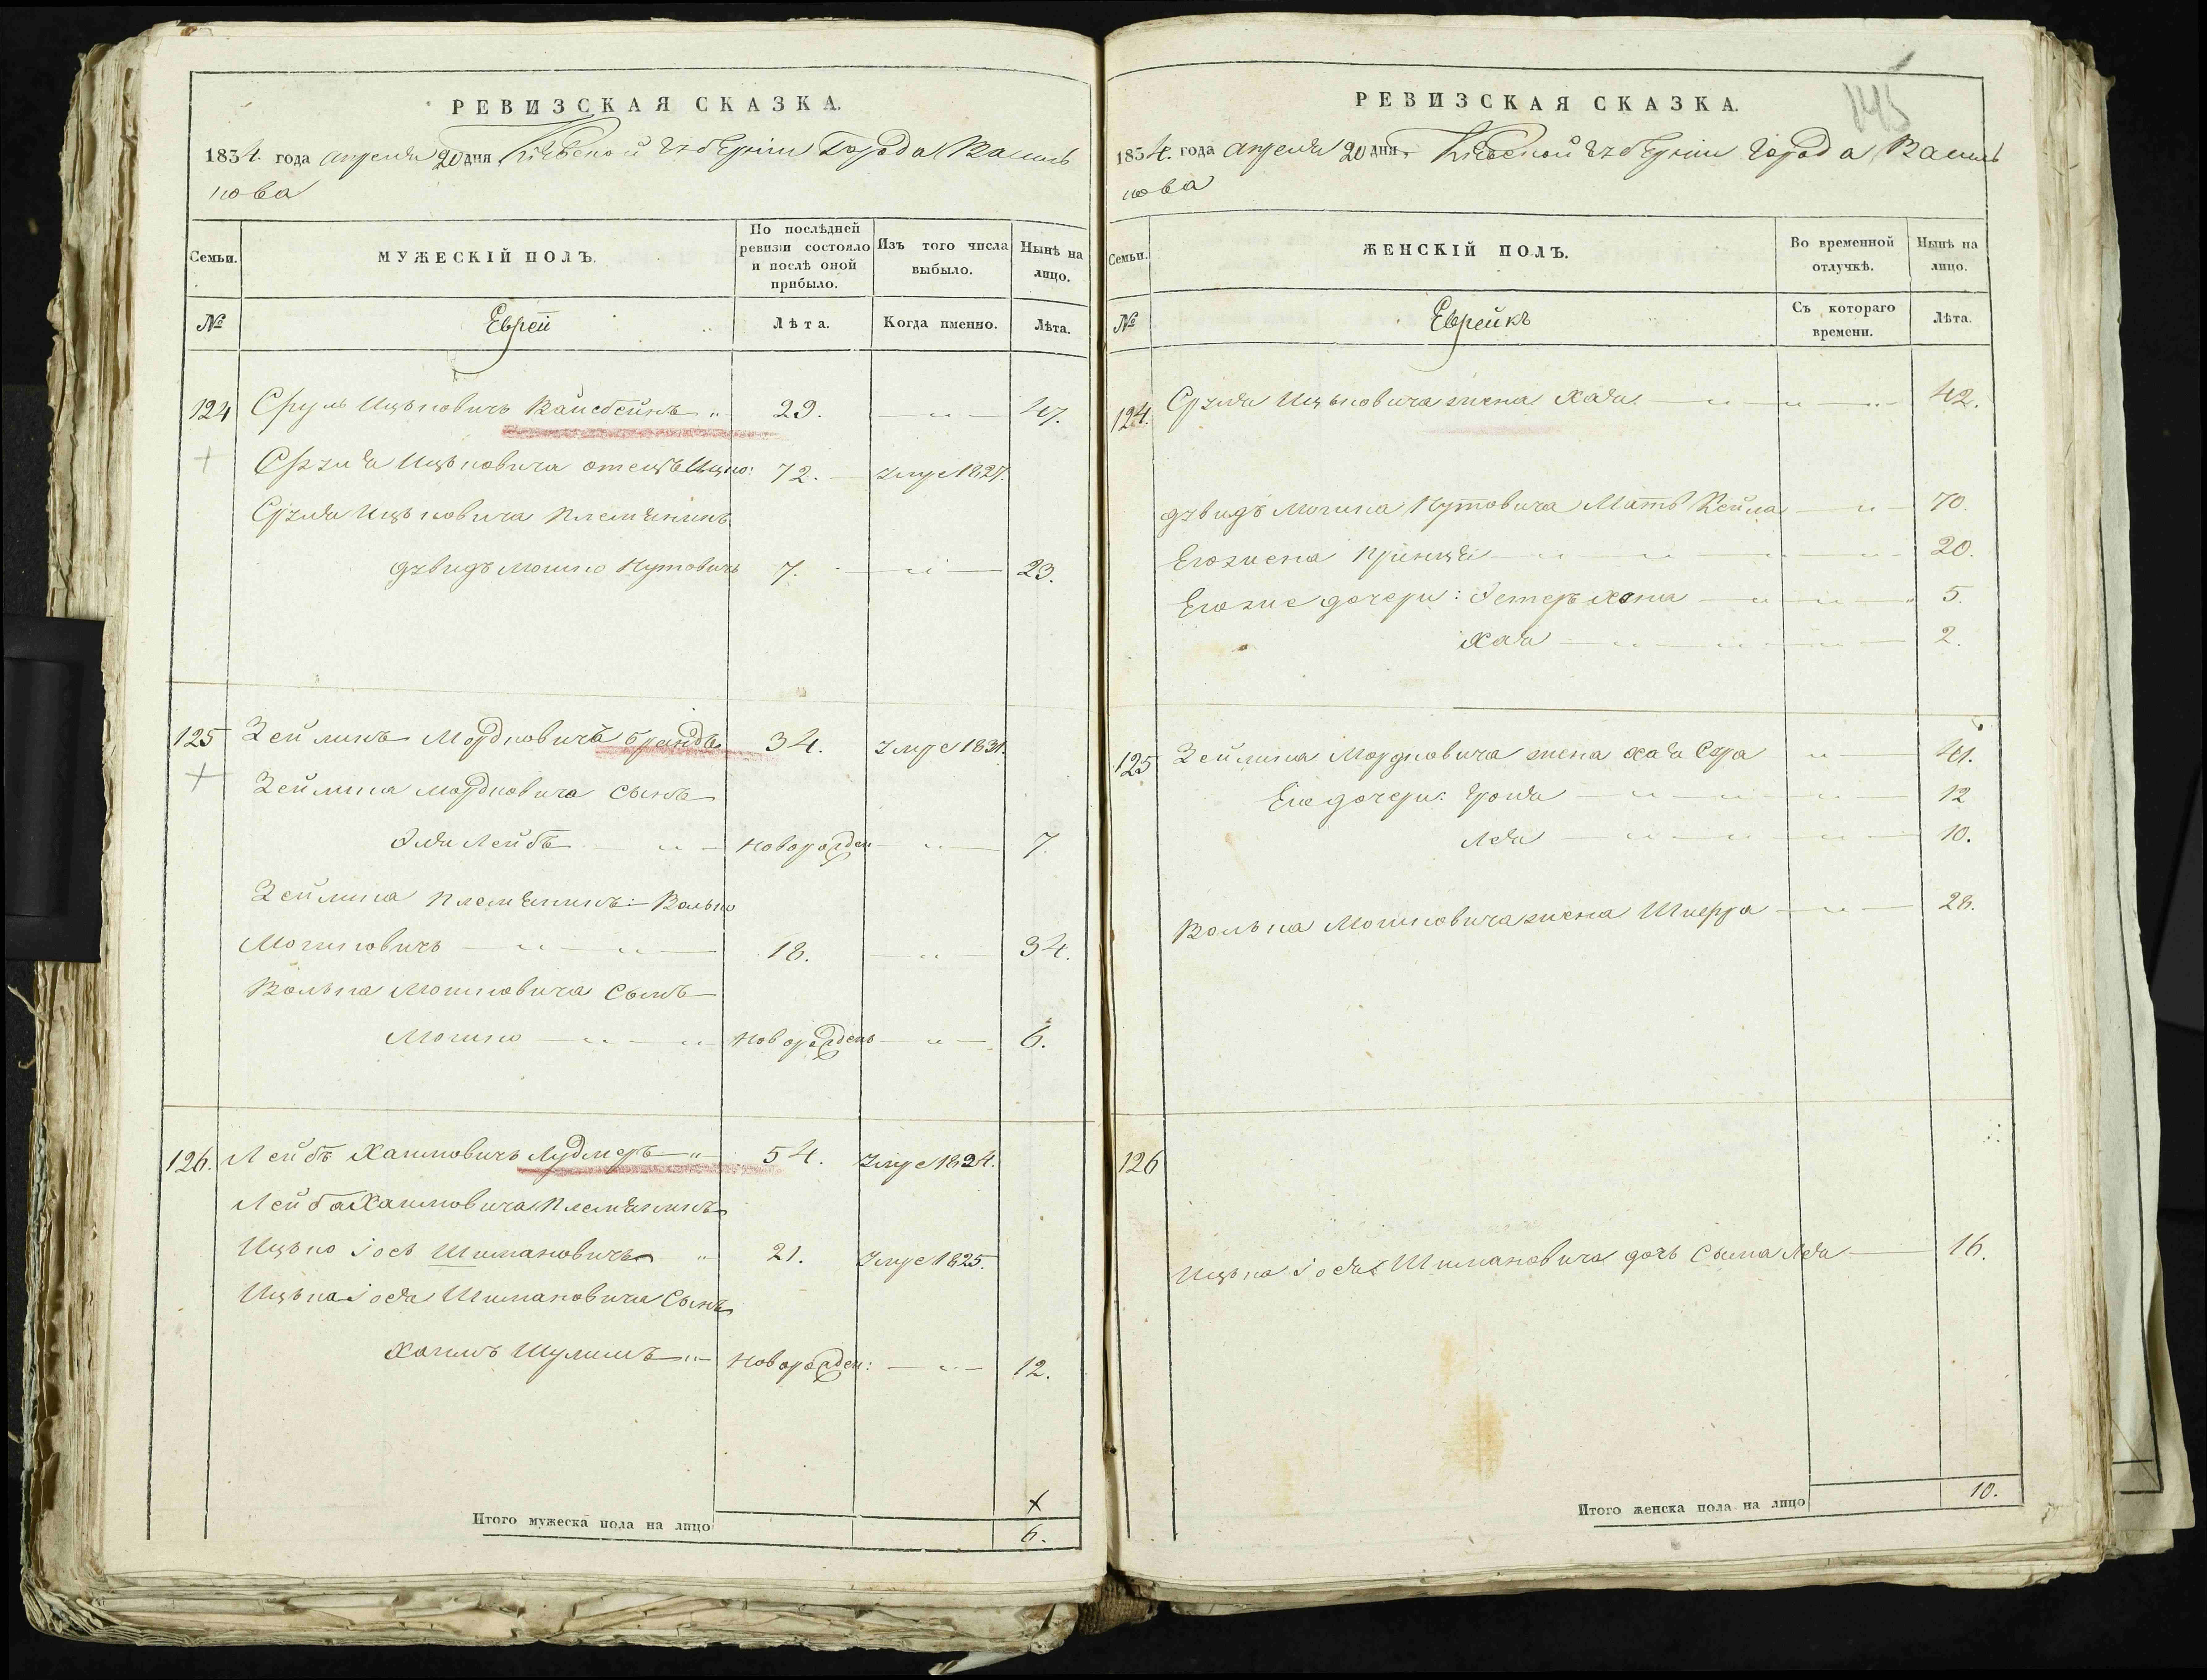 РЕВИЗСКАЯ СКАЗКА.
1834. года апреля 20 дня Кіевской губерніи Города Василь
кова
Семьи.
МУЖЕСКІЙ ПОЛЪ.
По послѣдней ревизіи состояло и послѣ оной прибыло.
Изъ того числа выбыло.
Нынѣ на лицо.
№
Еврей
Лѣта.
Когда именно.
Лѣта.
124 Сруль Ицьковичъ Вайсбейнъ 29. 47.
Сруля Ицьковича отецъ Ицко: 72. умре 1827.
Сруля Ицьковича племянникъ
Давидъ Мошко Нутовичъ 7. 23.
125 Зейликъ Мордковичъ Брандъ 34. умре 1831.
Зейлика Мордковича сынъ
Эля Лейбъ новорожден 7.
Зейлика племянникъ: Волько
Мошковичъ 18. 34.
Волька Мошковича сынъ
Мошко новорожденъ 6.
126. Лейбъ Хаимовичъ Лудмеръ 54. умре 1824.
Лейба Хаимовича племянникъ
Ицько Іось Шимановичъ 21. умре 1825.
Ицька Іося Шимановича сынъ
Хаимъ Шулимъ новорожден: 12.
Итого мужеска пола на лицо
х
6.
145
РЕВИЗСКАЯ СКАЗКА.
1834. года апреля 20 дня. Кіевской губерніи города Василь
кова
Семьи.
ЖЕНСКІЙ ПОЛЪ.
Во временной отлучкѣ.
Нынѣ на лицо.
№
Еврейкъ
Съ котораго времени.
Лѣта.
124. Сруля Ицьковича жена Хая 42.
Давидъ Мошка Нутовича мать Бейла 70.
Его жена 20.
Его же дочери: Эстеръ Хана 5.
Хая 2.
125 Зейлика Мордковича жена Хая Сура 41.
Его дочери: 12
Лея 10.
Волька Мошковича жена Шифра 28.
126
Ицька Іося Шимановича дочь Сима Лея 16.
Итого женска пола на лицо 10.